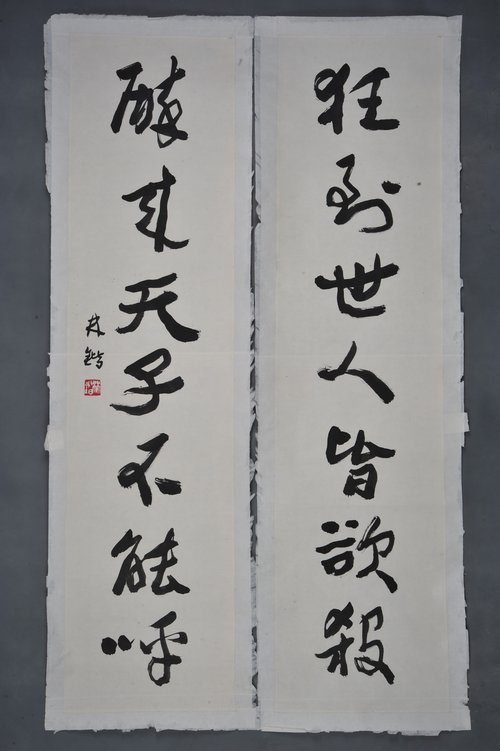 狂到世人皆欲殺
醉來天子不能呼
林鍇